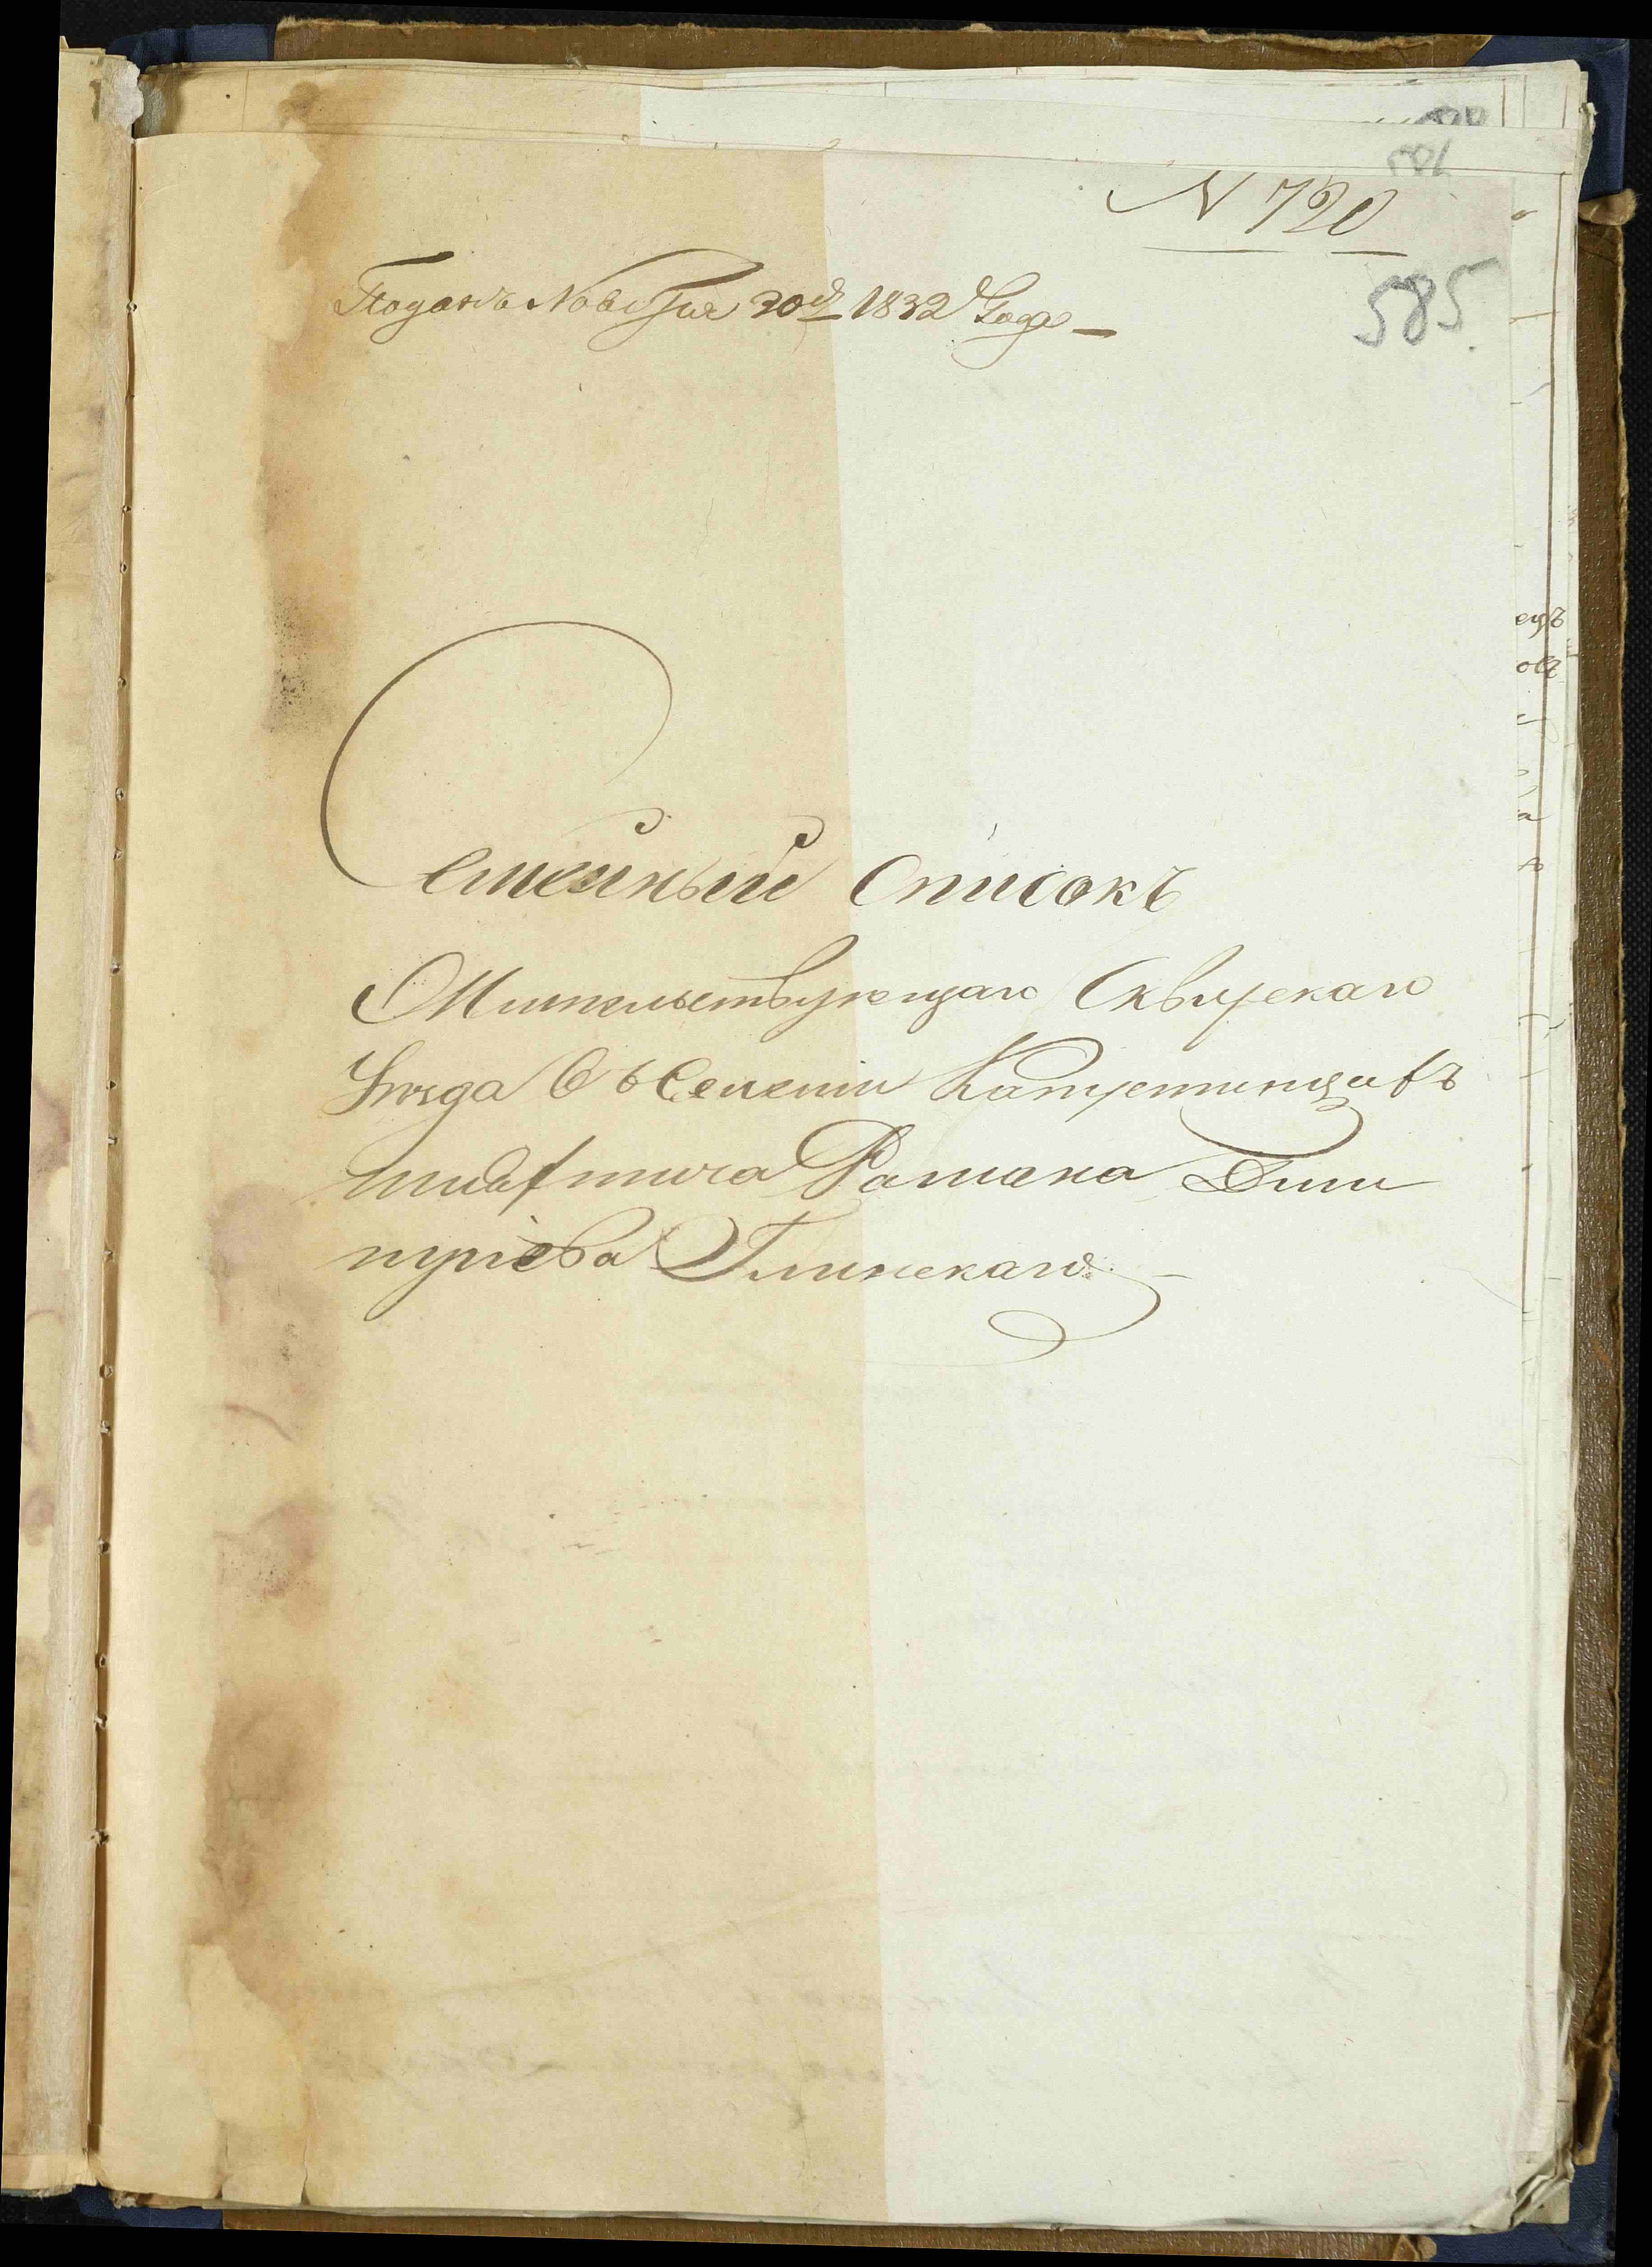 N 720
585
Поданъ Ноября 30го 1832 Года
Семейный Списокъ
Жительствующаго Сквирскаго
Уезда въ Селении Капустинцахъ
шляхтича Рамана Дми
тріева Глинскаго